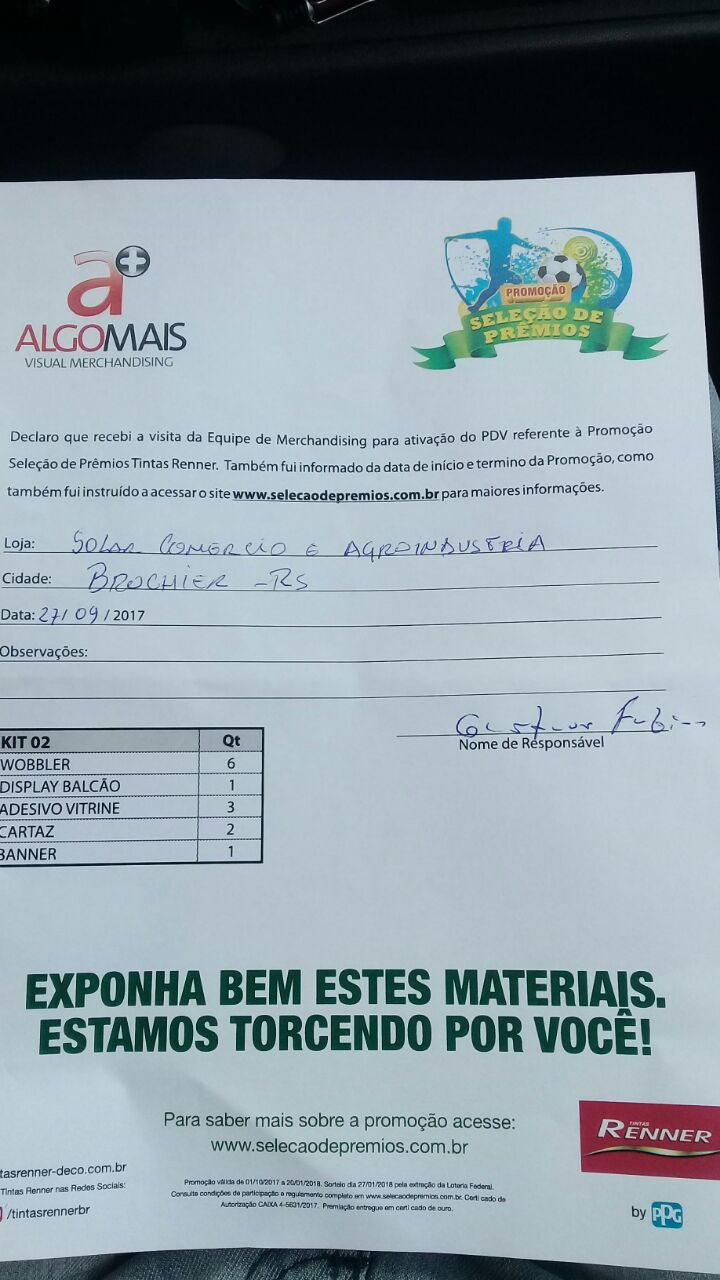 a+
ALGOMAIS
VISUAL MERCHANDISING
PROMOÇÃO
SELEÇÃO DE
PRÊMIOS
Declaro que recebi a visita da Equipe de Merchandising para ativação do PDV referente à Promoção
Seleção de Prêmios Tintas Renner. Também fui informado da data de início e termino da Promoção, como
também fui instruído a acessar o site www.selecaodepremios.com.br para maiores informações.
Loja: SOLAR COMERCIO E AGROINDUSTRIA
Cidade: BROCHIER - RS
Data: 27/09/2017
Observações:
Nome de Responsável
KIT 02 Qt
WOBBLER 6
DISPLAY BALCÃO 1
ADESIVO VITRINE 3
CARTAZ 2
BANNER 1
EXPONHA BEM ESTES MATERIAIS.
ESTAMOS TORCENDO POR VOCÊ!
Para saber mais sobre a promoção acesse:
www.selecaodepremios.com.br
TINTAS
RENNER
by PPG
tasrenner-deco.com.br
Tintas Renner nas Redes Sociais:
/tintasrennerbr
Promoção válida de 01/10/2017 a 20/01/2018. Sorteio dia 27/01/2018 pela extração da Loteria Federal.
Consulte condições de participação e regulamento completo em www.selecaodepremios.com.br. Certi cado de
Autorização CAIXA 4-5631/2017. Premiação entregue em certi cado de ouro.